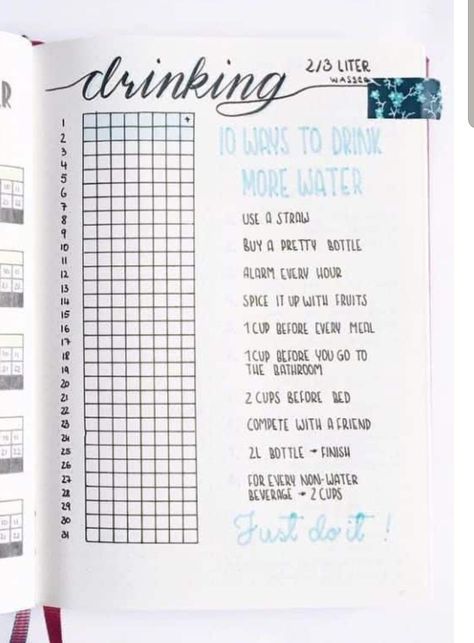 drinking
2/3 LITER
WASSER
10 WAYS TO DRINK
MORE WATER
USE A STRAW
BUY A PRETTY BOTTLE
ALARM EVERY HOUR
SPICE IT UP WITH FRUITS
1 CUP BEFORE EVERY MEAL
1 CUP BEFORE YOU GO TO
THE BATHROOM
2 CUPS BEFORE BED
COMPETE WITH A FRIEND
2L BOTTLE → FINISH
FOR EVERY NON-WATER
BEVERAGE → 2 CUPS
Just do it !
1
+
2
3
4
5
6
7
8
9
10
11
12
13
14
15
16
17
18
19
20
21
22
23
24
25
26
27
28
29
30
31